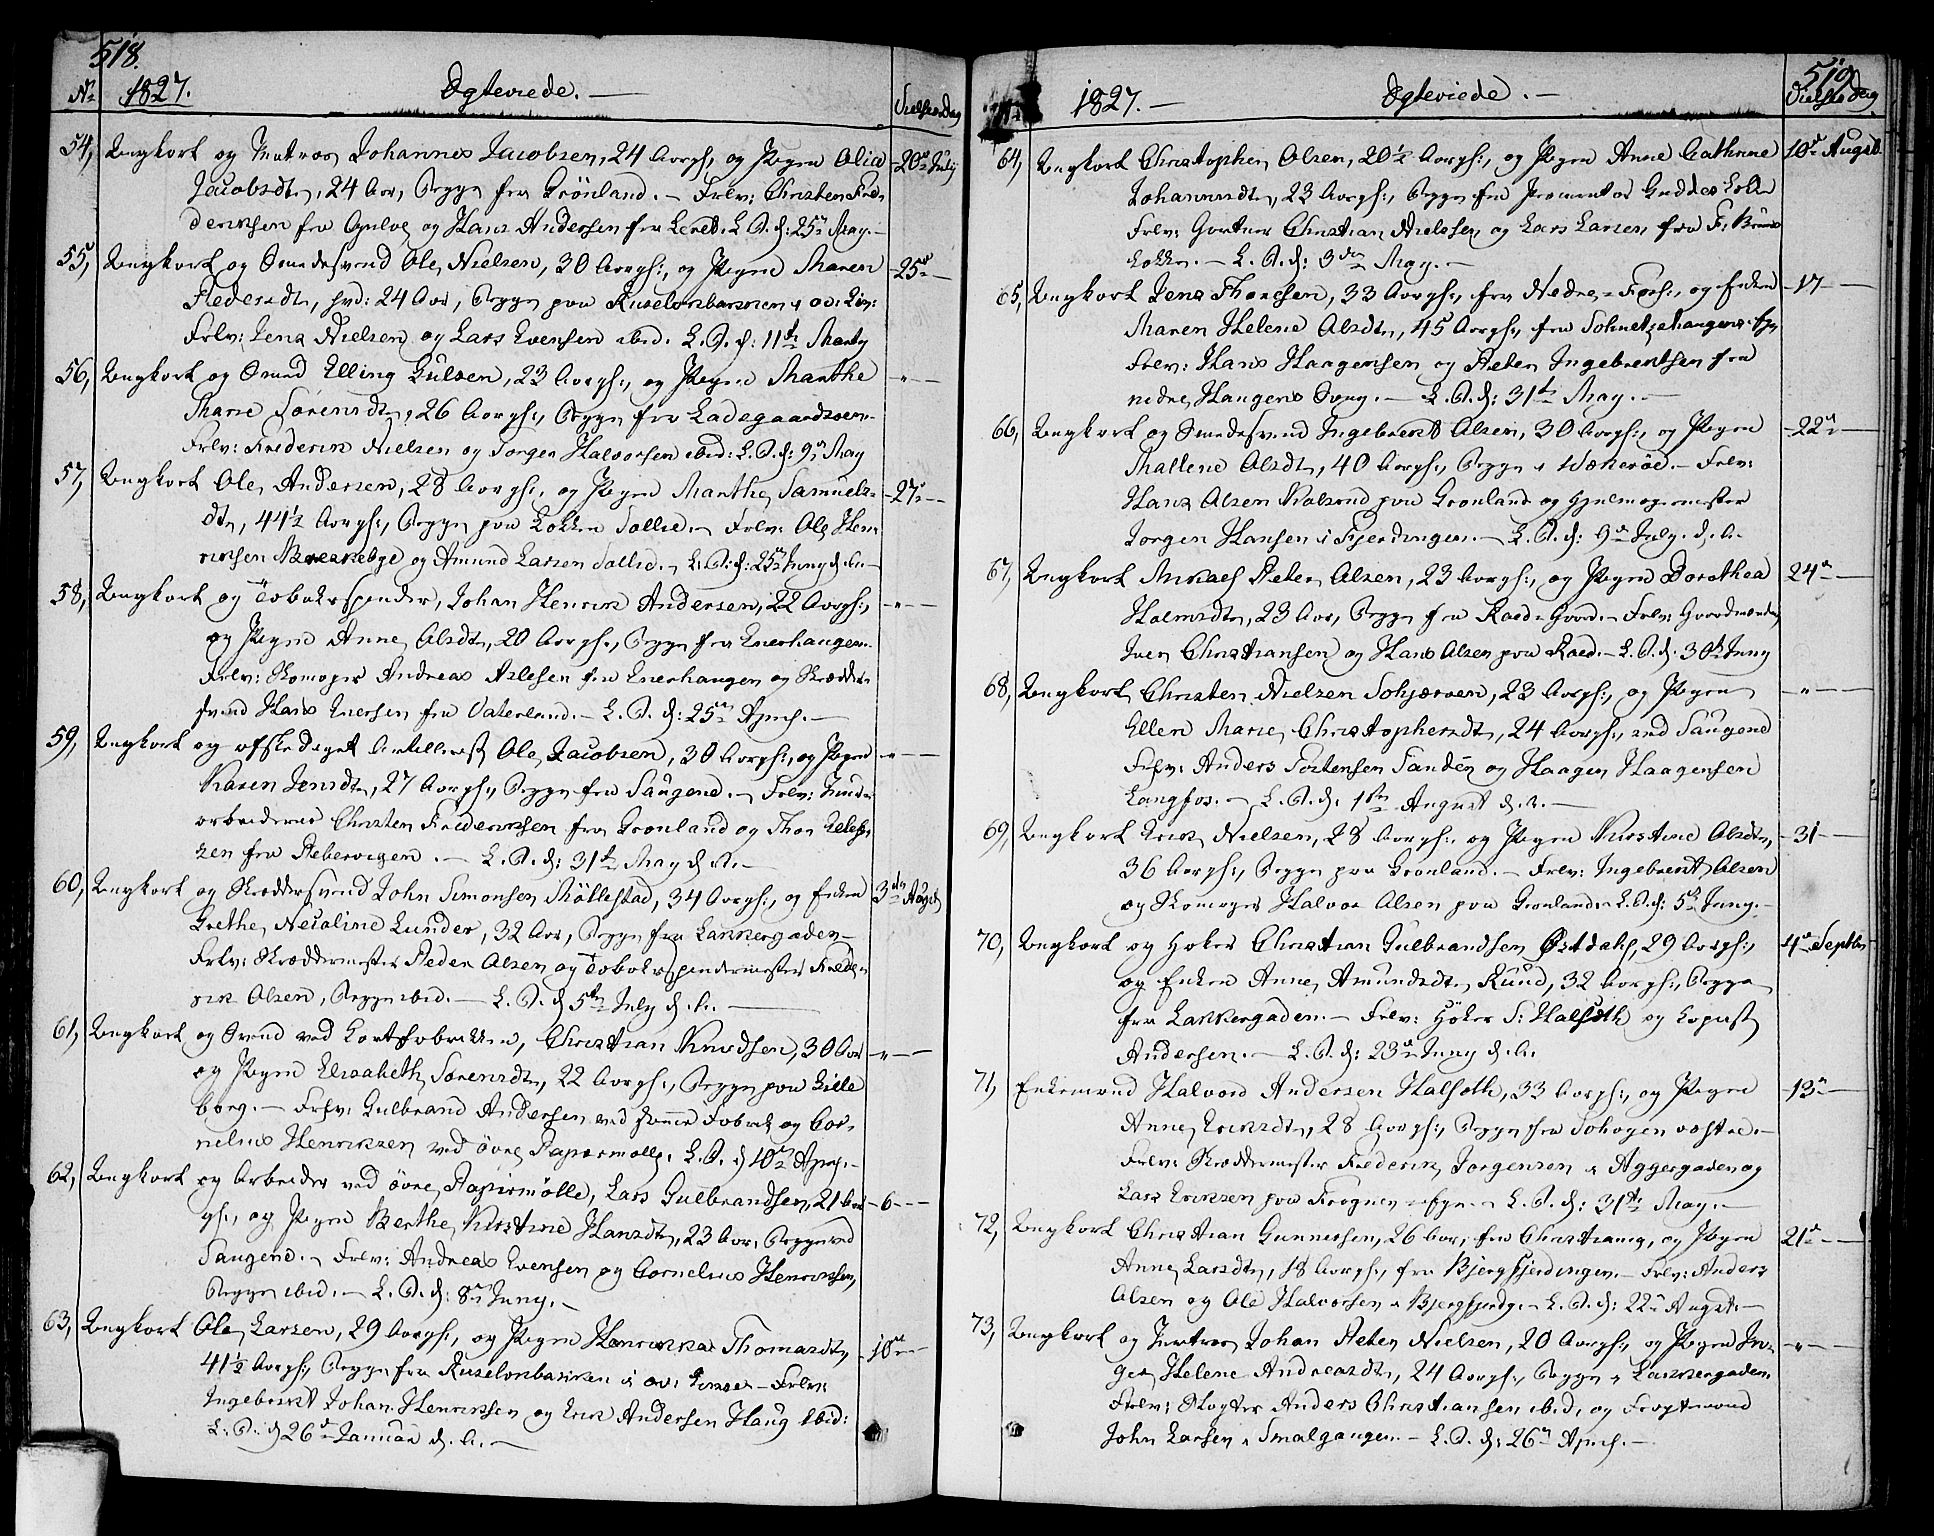 518.
No 1827. Egteviede. — Vielsesdag
54, Ungkarl og Matros Johannes Jacobsen, 24 Aar gl:, og Pigen Alice 20de July
Jacobsdtr, 24 Aar, Begge fra Grönland. — Forlv: Christen Fre-
deriksen fra og Hans Andersen fra Leret. L. S. d: 25de May. —
55, Ungkarl og Smedesvend Ole Nielsen, 30 Aar gl:, og Pigen Maren 25de —
Pedersdtr, hvd: 24 Aar, Begge paa
Forlv: Jens Nielsen og Lars Evensen ibid. L. S. d: 11te Marty
56, Ungkarl og Smed Elling Gulsen, 23 Aar gl:, og Pigen Marthe - " -
Marie Sörensdtr, 26 Aar gl:, Begge fra Ladegaardsöen.
Forlv: Frederik Nielsen og Jörgen Halvorsen ibid: L. S. d: 9de May
57, Ungkarl Ole Andersen, 28 Aar gl:, og Pigen Marthe Samuels- 27de —
dtr, 44½ Aar gl:, Begge paa Lökken Sollie. — Forlv: Ole Hen-
riksen og Amund Larsen Sollie. — L. S. d: 25de Juny d. A. —
58, Ungkarl og Tobakspinder, Johan Henrik Andersen, 22 Aar gl:, - " -
og Pigen Anne Olsdtr, 20 Aar gl:, Begge fra Enerhaugen.
Forlv: Skomager Andreas Aslesen fra Enerhaugen og Skrædder-
svend Hans Iversen fra Vaterland. — L. S. d: 25de April. —
59, Ungkarl og afskediget Artillerist Ole Jacobsen, 30 Aar gl:, og Pigen - " -
Karen Jensdtr, 27 Aar gl:, Begge fra Saugene. — Forlv:
arbeiderne Christen Frederiksen fra Grönland og Thor
sen fra Pebervigen. — L. S. d: 31te May d. A. —
60, Ungkarl og Skræddersvend John Simonsen Möllestad, 34 Aar gl:, og Enken 3die August
Grethe Nicoline Lunder, 32 Aar, Begge fra Lakkergaden —
Forlv: Skræddermester Peder Olsen og Tobakspindermester Frede-
rik Olsen, Begge ibid. — L. S. d 5te July d. A. —
61, Ungkarl og Svend ved Kortfabrikken, Christian Knudsen, 30 Aar - " -
og Pigen Elisabeth Sörensdtr, 22 Aar gl:, Begge paa Lille
borg. — Forlv: Gulbrand Andersen ved samme Fabrik og Cor-
nelius Henriksen ved övre Papiermölle. L. S. d 10de April. —
62, Ungkarl og Arbeider ved övre Papirmölle, Lars Gulbrandsen, 21 Aar - 6 -
gl:, og Pigen Berthe Kirstine Hansdtr, 23 Aar, Begge ved
Saugene. — Forlv: Andreas Evensen og Cornelius Henriksen,
Begge ibid. — L. S. d: 8de Juny. —
63, Ungkarl Ole Larsen, 29 Aar gl:, og Pigen Henrikka Thomasdtr, 10de —
41½ Aar gl:, Begge fra
Ingebrikt Johan Henriksen og Erik Andersen Haug ibid:
L. S. d 26de Januar d. A. —
519.
1827. — Egteviede. — Vielsesdag
64, Ungkarl Christopher Olsen, 20½ Aar gl:, og Pigen Anne Cathrine 10de August
Johannesdtr, 23 Aar gl:, Begge fra Løkke
Forlv: Gartner Christian Nielsen og Lars Larsen fra
Løkke. — L. S. d: 3die May. —
65, Ungkarl Jens Thoresen, 33 Aar gl:, fra Nedre-Foss:, og Enken - 17 -
Maren Helene Olsdtr, 45 Aar gl:, fra
Forlv: Hans Haagensen og Peter Ingebrentsen fra
nedre — L. S. d: 31te May. —
66, Ungkarl og Smedesvend Ingebrekt Olsen, 30 Aar gl:, og Pigen 22de —
Mallene Olsdtr, 40 Aar gl:, Begge i Wækeröe. — Forlv:
Hans Olsen Kalsrud paa Grönland og Hjulmagermester
Jörgen Hansen i Fjerdingen. — L. S. d: 9de July d. A.
67, Ungkarl Mikael Peter Olsen, 23 Aar gl:, og Pigen Dorothea 24de —
Holmsdtr, 23 Aar, Begge fra Raed-Gaard. — Forlv: Gaardmænde
Iver Christiansen og Hans Olsen paa Raed. — L. S. d: 30te Juny
68, Ungkarl Christen Nielsen Sohjerven, 23 Aar gl:, og Pigen - " -
Ellen Marie Christophersdtr, 24 Aar gl:, ved Saugene
Forlv: Anders Tostensen Sanden og Haagen Haagensen
Langfos. — L. S. d: 1ste August d. A. —
69, Ungkarl Erik Nielsen, 28 Aar gl:, og Pigen Kirstine Olsdtr, 31 —
36 Aar gl:, Begge paa Grönland. — Forlv: Ingebrekt Olsen
og Skomager Halvor Olsen paa Grönland. L. S. d: 5te Juny. —
70, Ungkarl og Höker Christian Gulbrandsen Östdahl, 29 Aar gl:, 4de Septbr
og Enken Anne Amundsdtr Ruud, 32 Aar gl:, Begge
fra Lakkergaden. — Forlv: Höker S: Halseth og Kopist
Andersen. — L. S. d: 23de Juny d. A.
71, Enkemand Halvor Andersen Halseth, 33 Aar gl:, og Pigen 13de —
Anne Eriksdtr, 28 Aar gl:, Begge fra
Forlv: Skræddermester Frederik Jörgensen i Aggergaden og
Lars Eriksen paa Frogner L. S. d: 31te May. —
72, Ungkarl Christian Gunnersen, 26 Aar, fra Christiania, og Pigen 21de —
Anne Larsdtr, 18 Aar gl:, fra Bjergfjerdingen. — Forlv: Anders
Olsen og Ole Halvorsen i Bjergfjerdg. — L. S. d: 22de August. —
73, Ungkarl og Matros Johan Peter Nielsen, 20 Aar gl:, og Pigen In- - " -
ger Helene Andreasdtr, 24 Aar gl:, Begge i Lakkergaden.
Forlv: Slagter Anders Christiansen ibid, og Fragtmand
John Larsen i Smalgangen. — L. S. d: 26de April. —